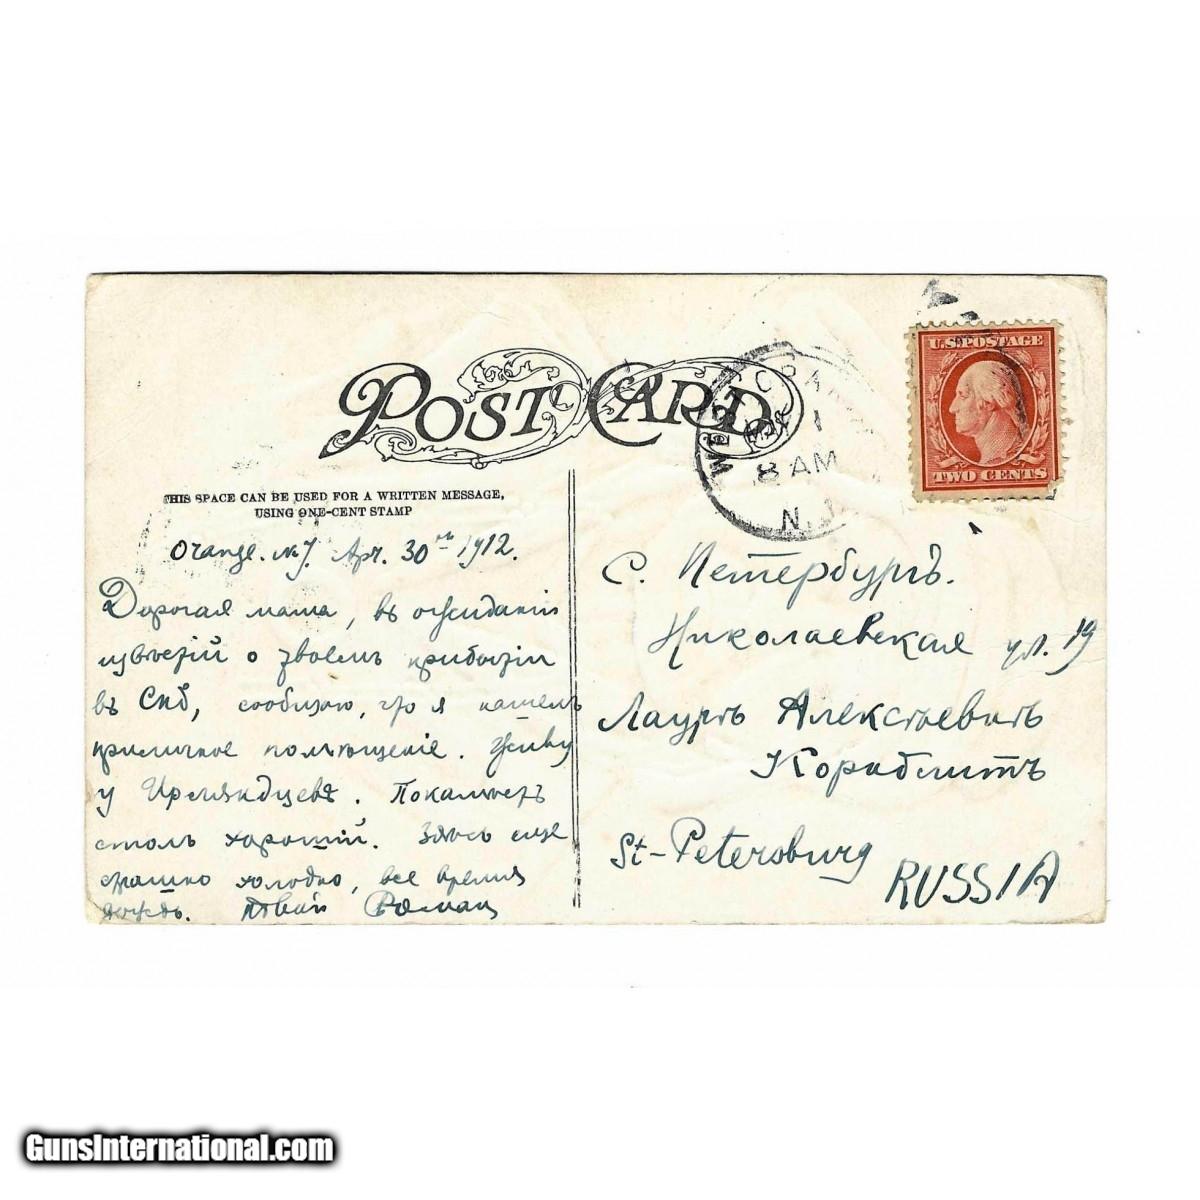 POST CARD
THIS SPACE CAN BE USED FOR A WRITTEN MESSAGE,
USING ONE-CENT STAMP
Orange. N.J. Apr. 30 1912.
Дорогая мама, въ ожиданіи
извѣстій о твоемъ прибытіи
въ Спб, сообщаю, что я нашелъ
приличное помѣщеніе. Живу
у
Покамѣстъ
столъ хорошій. Здѣсь еще
страшно холодно, все время
дождь. Твой Роман
WEST ORAN
MAY
1
8 AM
N.J.
U.S. POSTAGE
TWO CENTS
С. Петербургъ.
Николаевская ул. 19
Лаурѣ Алексѣевнѣ
Кораблитъ
St-Petersburg
RUSSIA
GunsInternational.com